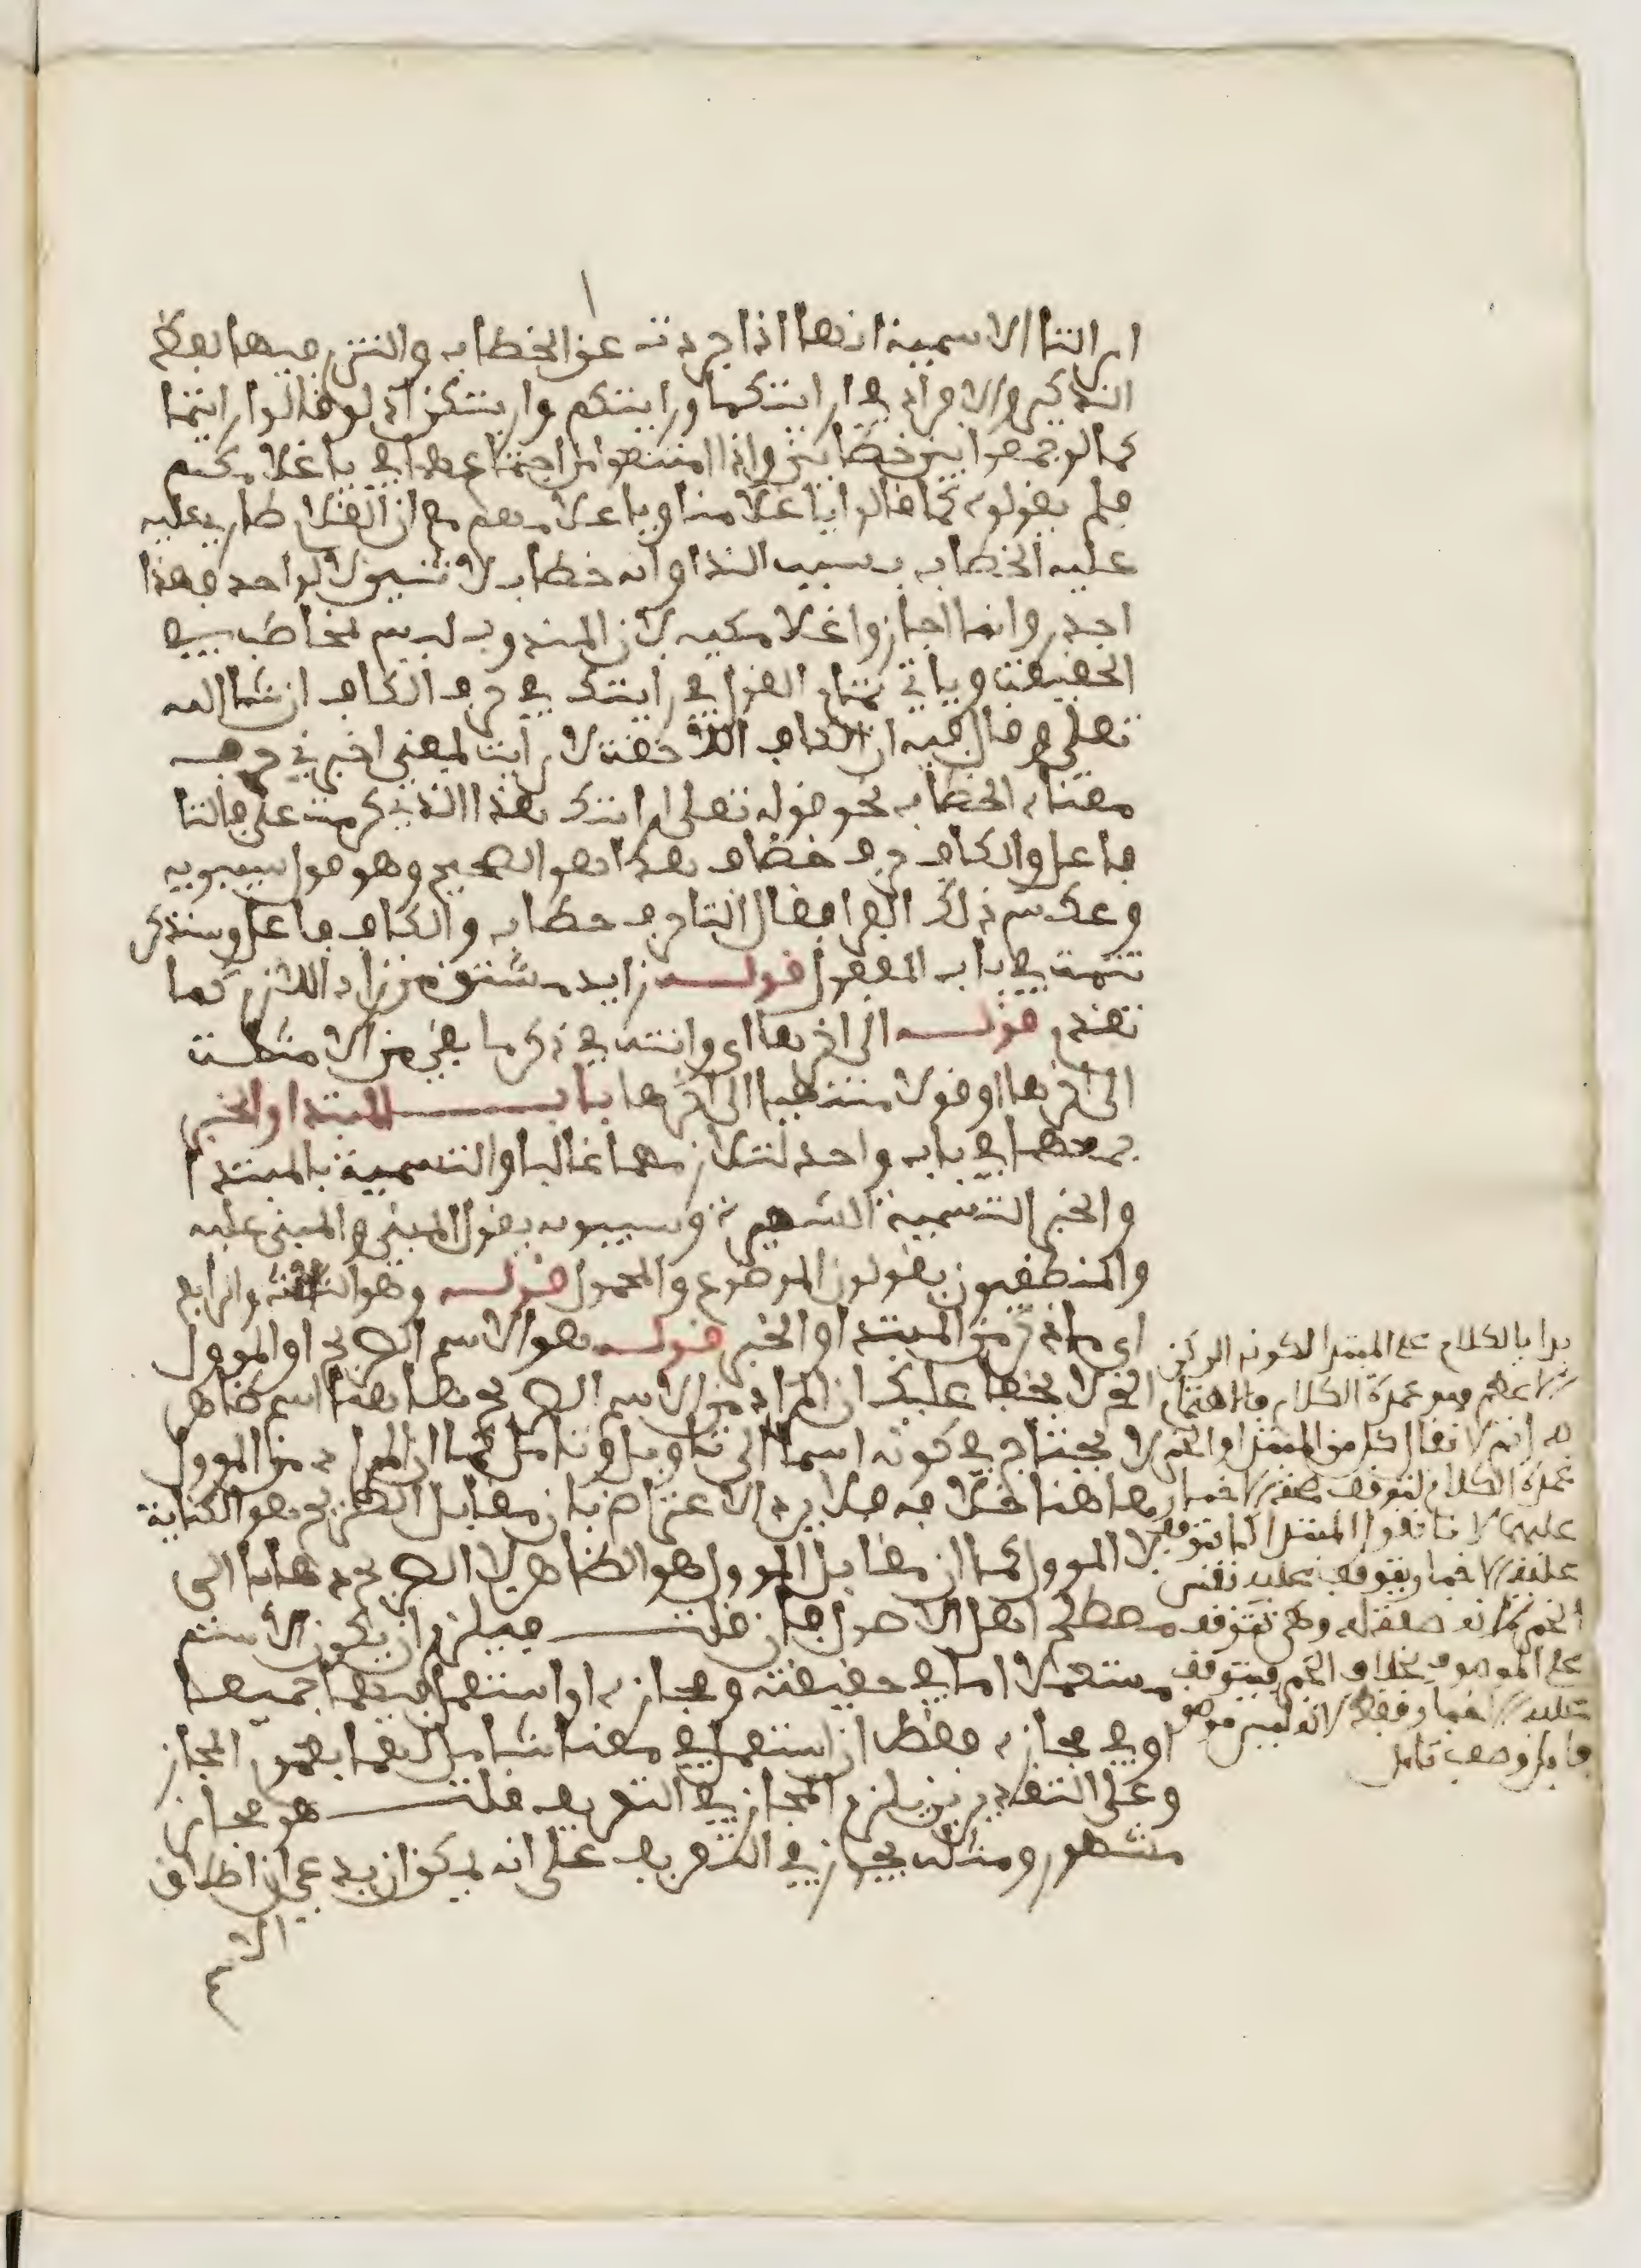 ان التا الاسمية انها اذا جردت عن الخطاب والتزم فيها لفظ
التذكير والافراد في ارايتكما وارايتكم وارايتكن اذ لو قالوا ارايتما
كما لو جمعوا بين خطابين واذا امتنعوا من اجتماعهما في يا غلامكم
فلم يقولوه كما قالوا يا غلامنا ويا غلامهم مع ان الغلام طار عليه
عليه الخطاب بسبب الندا وانه خطاب لاثنين لا لواحد فهذا
اجدر وانما اجاز واغلامكيه لان المندوب ليس بمخاطب في
الحقيقة وياتي تمام القول في ارايتك في حرف الكاف ان شا الله
تعلى وقال فيه ان الكاف اللاحقة لارايت بمعنى اخبرني حرف
معناه الخطاب نحو قوله تعلى ارايتك هذا الذي كرمت علي فالتا
فاعل والكاف حرف خطاب هذا هو الصحيح وهو قول سيبويه
وعكس ذلك الفرا فقال التا حرف خطاب والكاف فاعل وسنذكر
تتمة في باب المفعول قوله زايد مشتق من زاد اللازم كما
تقدم قوله الى اخرها اي وانته في ذكر ما بقي من الامثلة
الى اخرها او قولا منتهيا الى اخرها باب المبتدا والخبر
جمعهما في باب واحد لتلازمهما غالبا والتسمية بالمبتدا
والخبر التسمية الشهيرة وسيبويه يقول المبني والمبني عليه
والمنطقيون يقولون الموضوع والمحمول قوله وهو الثالث والرابع
اي ما ذكر من المبتدا والخبر قوله هو الاسم الصريح او الموول
الخ لا يخفا عليك ان المراد من الاسم الصريح هاهنا اسم ظاهر
لا يحتاج في كونه اسما الى تاويل وتامل كما ان المراد من الموول
هاهنا خلافه فلا يرد الاعتراض بان مقابل الصريح هو الكناية
لا الموول كما ان مقابل الموول هو الظاهر لا الصريح ذهابا الى
مصطلح اهل الاصول فان قلت فيلزم ان يكون الاسم
مستعملا اما في حقيقته ومجازه او استعمل فيهما جميعا
او في مجازه فقط ان استعمل في معنا شامل لهما بعموم المجاز
وعلى التقديرين يلزم المجاز في التعريف قلت هو مجاز
مشهور ومثله يجوز في التعريف على انه يمكن ان يدعى ان اطلاق
الاسم
بدا بالكلام على المبتدا لكونه الركن
الاعظم وهو عمدة الكلام فالاهتمام
به اتم لا يقال كل من المبتدا والخبر
عمدة الكلام لتوقف صفة الاخبار
عليهما لانا نقول المبتدا كما تتوقف
عليه الاخبار يتوقف عليه نفس
الخبر لانه صفة له وهي تتوقف
على الموصوف بخلاف الخبر فيتوقف
عليه الاخبار فقط لانه ليس موصوفا
بل وصف تامل